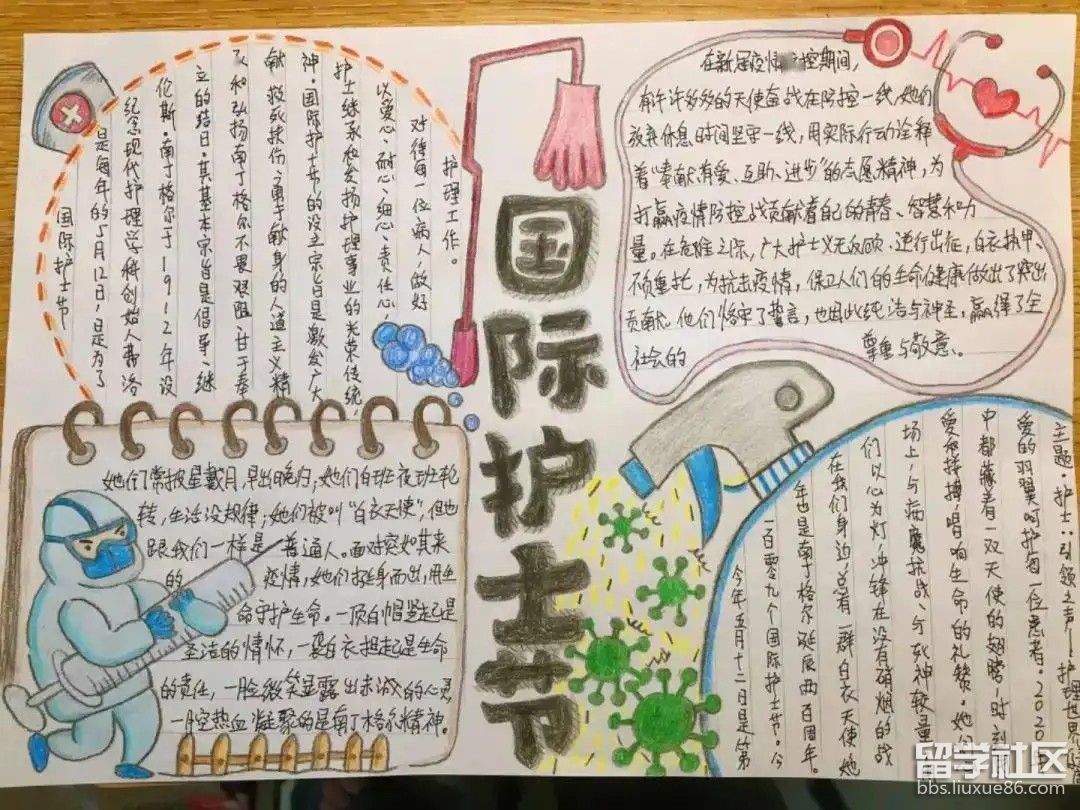 国际护士节
国际护士节
是每年的5月12日,是为了
纪念现代护理学科创始人弗洛
伦斯·南丁格尔于1912年设
立的结日.其基本宗旨是倡导、继
和弘扬南丁格尔不畏艰险、甘于奉
献、救死扶伤、勇于献身的人道主义精
神.国际护士节的设立宗旨是激发广大
护士继承和发扬护理事业的光荣传统,
以爱心、耐心、细心、责任心,
对待每一位病人,做好
护理工作。
在新冠疫情防控期间,
有许许多多的天使奋战在防控一线,她们
放弃休息时间坚守一线,用实际行动诠释
着“奉献有爱、互助、进步”的志愿精神,为
打赢疫情防控战贡献着自己的青春、智慧和力
量。在危难之际,广大护士义无反顾、逆行出征,白衣执甲、
不负重托,为抗击疫情,保卫人们的生命健康做出了突出
贡献。他们恪守了誓言,也因此纯洁与神圣,赢得了全
社会的 尊重与敬意。
她们常披星戴月,早出晚归,她们白班夜班轮
转,生活没规律;她们被叫“白衣天使”,但也
跟我们一样是普通人。面对突如其来
的疫情,她们挺身而出,用生
命守护生命。一顶白帽竖起是
圣洁的情怀,一袭白衣担起是生命
的责任,一脸微笑显露出赤诚的心灵
一腔热血凝聚的是南丁格尔精神。
今年五月十二日是第
一百零九个国际护士节。今
年也是南丁格尔诞辰两百周年。
在我们身边,总有一群白衣天使她
们以心为灯,冲锋在没有硝烟的战
场上,与病魔抗战、与死神较量
爱和拼搏,唱响生命的礼赞。她们
中都藏着一双天使的翅膀,时刻
爱的羽翼呵护每一位患者。2020年
主题,护士:引领之声——护理也是
留学社区
bbs.liuxue86.com